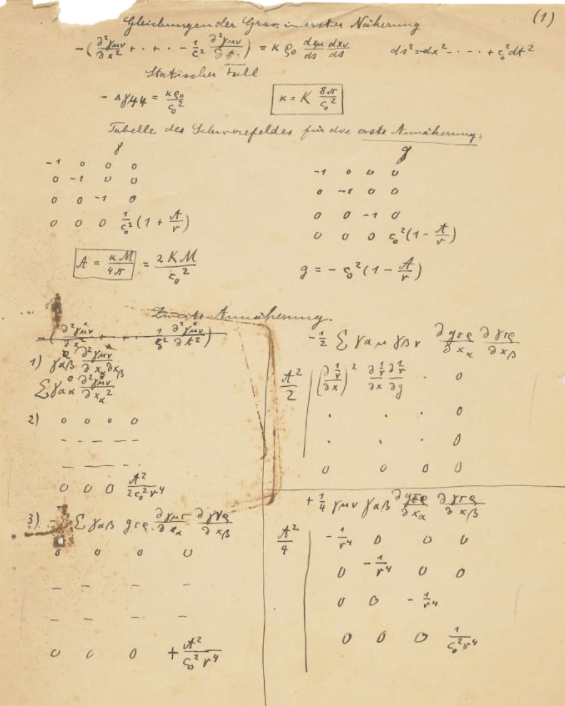 (1)
Gleichungen der Grav. in erster Näherung
-(∂²γμν/∂x² + · + · - 1/c² ∂²γμν/∂t²) = κ ρ₀ dxμ/ds dxν/ds ds² = -dx² - · · · + c₀² dt²
Statischer Fall
- Δγ44 = κρ₀/c₀² κ = K 8π/c₀²
Tabelle des Schwerefeldes für die erste Annäherung.
γ g
-1 0 0 0 -1 0 0 0
0 -1 0 0 0 -1 0 0
0 0 -1 0 0 0 -1 0
0 0 0 1/c₀² (1 + A/r) 0 0 0 c₀² (1 - A/r)
A = κM/4π = 2KM/c₀² g = - c₀² (1 - A/r)
Zweite Annäherung.
-(∂²γμν/∂x² + · · · 1/c₀² ∂²γμν/∂t²)
1) γαβ ∂²γμν/∂xα∂xβ
Σ γαα ∂²γμν/∂xα²
2) 0 0 0 0
- - - -
- - -
0 0 0 A²/2c₀²r⁴
3) Σ γαβ gτρ ∂γμτ/∂xα ∂γνρ/∂xβ
0 0 0 0
- - - -
- - - -
0 0 0 + A²/c₀²r⁴
-1/2 Σ γαμ γβν ∂gτρ/∂xα ∂γτρ/∂xβ
A²/2 (∂1/r/∂x)² ∂1/r/∂x ∂1/r/∂y · 0
· · · 0
· · · 0
0 0 0 0
+ 1/4 γμν γαβ ∂gτρ/∂xα ∂γτρ/∂xβ
A²/4 -1/r⁴ 0 0 0
0 -1/r⁴ 0 0
0 0 -1/r⁴
0 0 0 1/c₀²r⁴